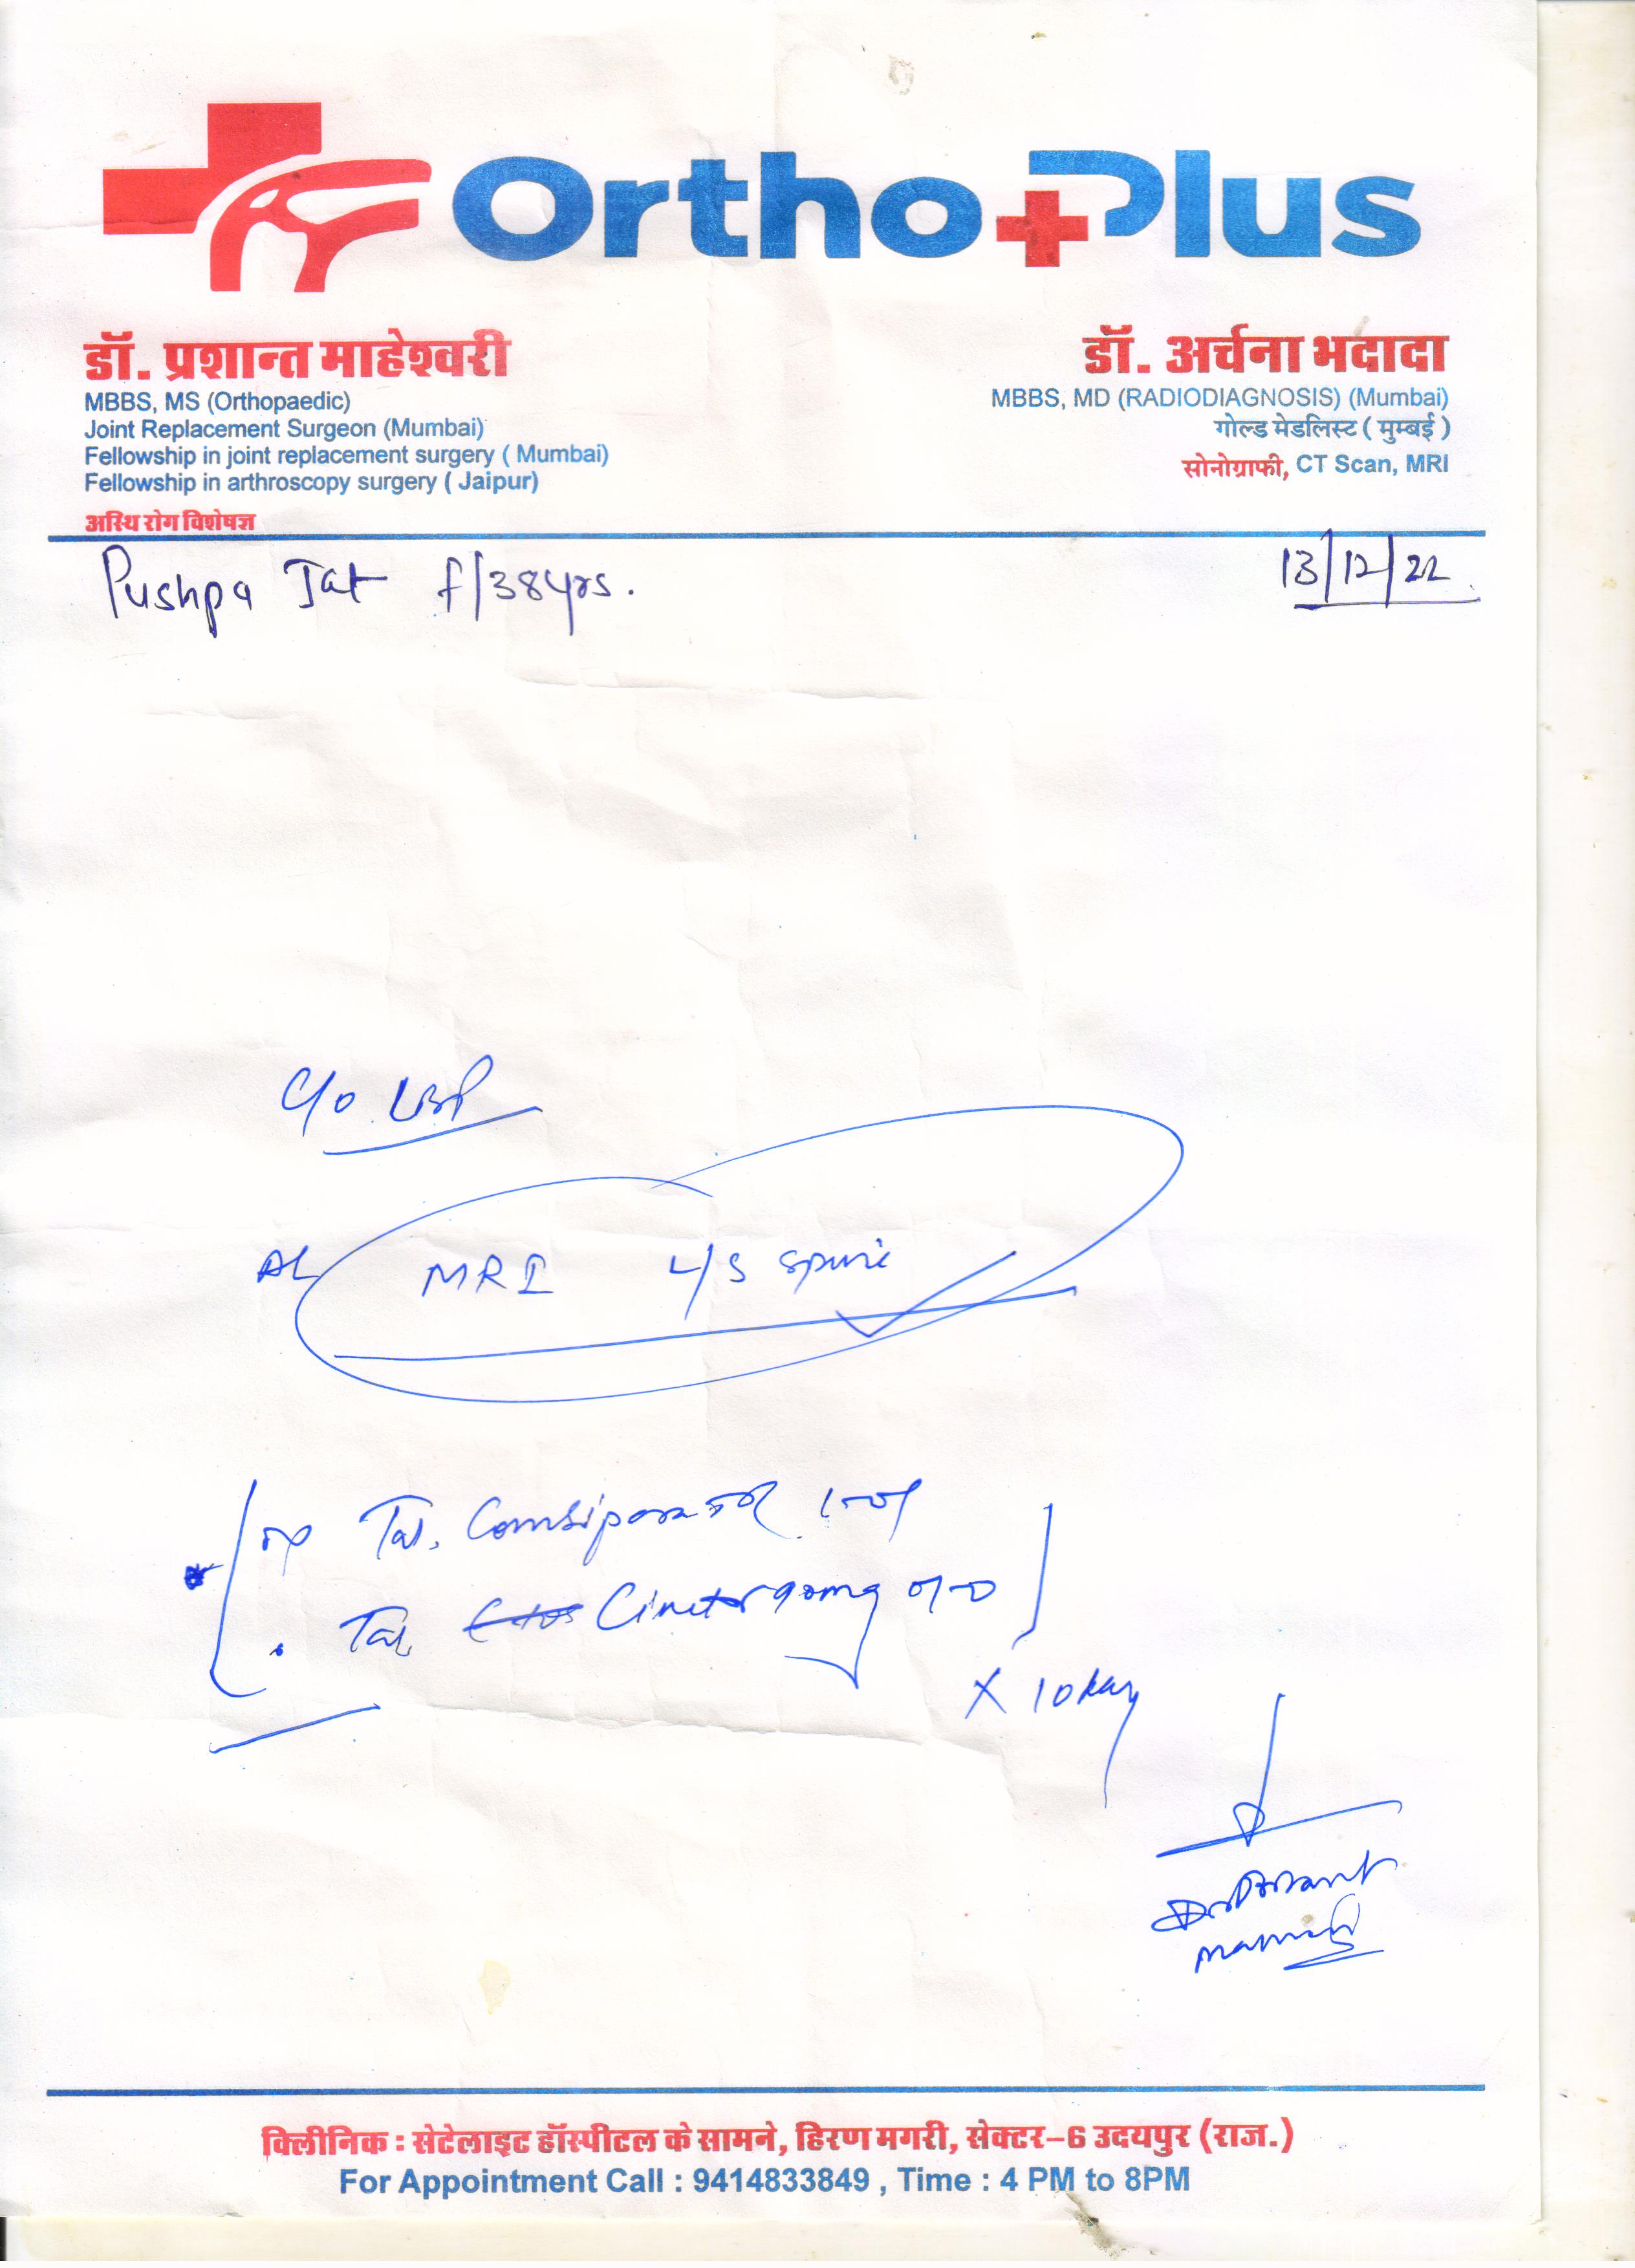 Ortho Plus
डॉ. प्रशान्त माहेश्वरी
MBBS, MS (Orthopaedic)
Joint Replacement Surgeon (Mumbai)
Fellowship in joint replacement surgery ( Mumbai)
Fellowship in arthroscopy surgery ( Jaipur)
अस्थि रोग विशेषज्ञ
डॉ. अर्चना भदादा
MBBS, MD (RADIODIAGNOSIS) (Mumbai)
गोल्ड मेडलिस्ट ( मुम्बई )
सोनोग्राफी, CT Scan, MRI
Pushpa Jat f/38yrs.
13/12/22
C/o LBP
MRI L/S spine
Tab.
Tab
X 10 day
क्लीनिक : सेटेलाइट हॉस्पीटल के सामने, हिरण मगरी, सेक्टर-6 उदयपुर (राज.)
For Appointment Call : 9414833849 , Time : 4 PM to 8PM